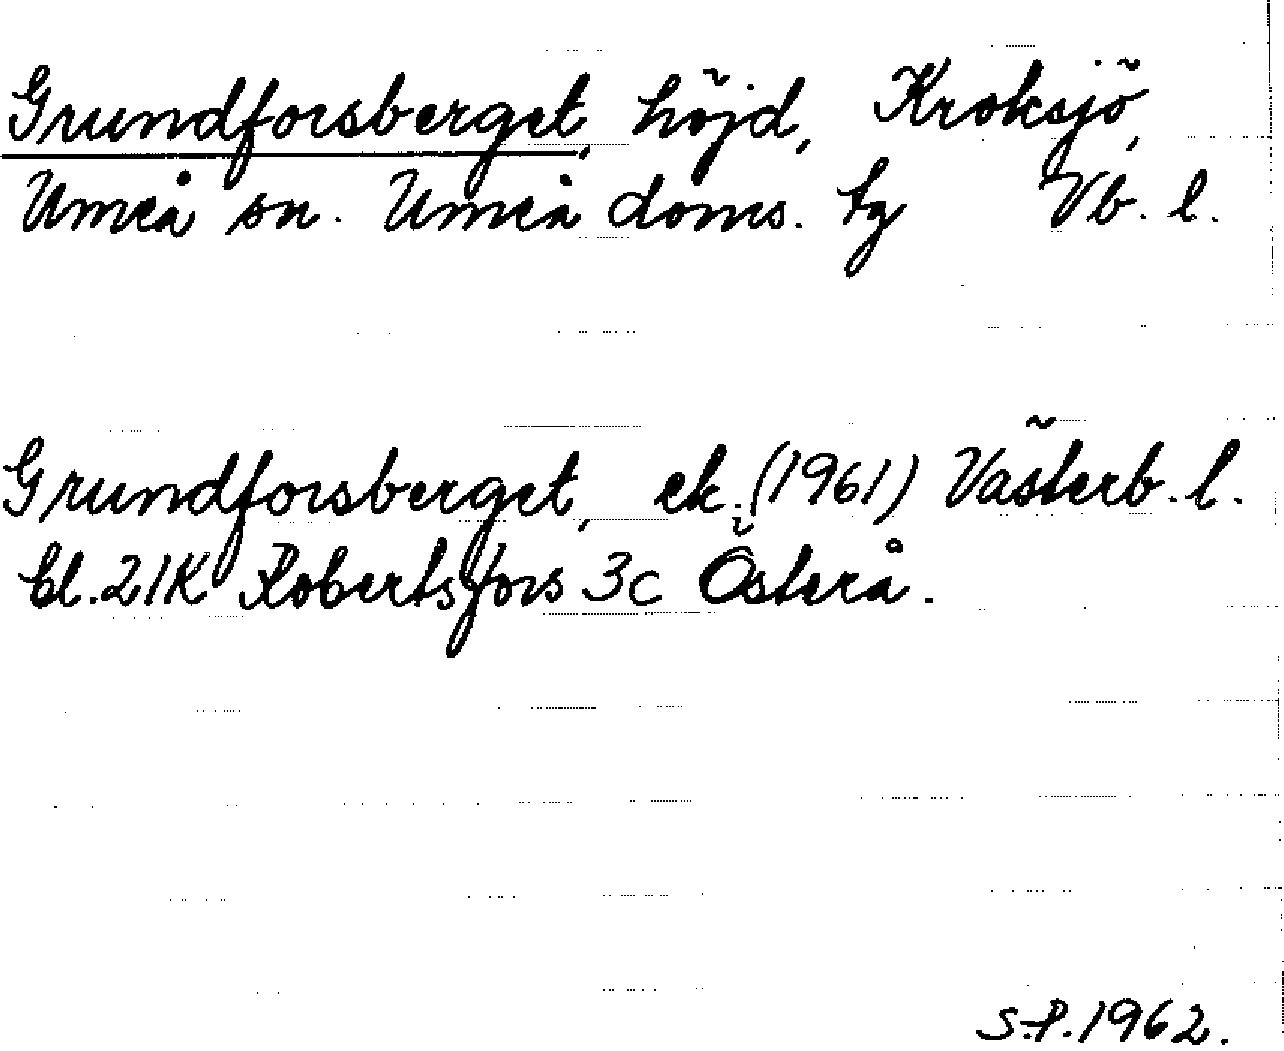 Grundforsberget, höjd, Kroksjö,
Umeå sn. Umeå doms. tg Vb. l.
Grundforsberget, ek. (1961) Västerb. l.
bl. 21K Robertsfors 3c Österå.
S.P. 1962.